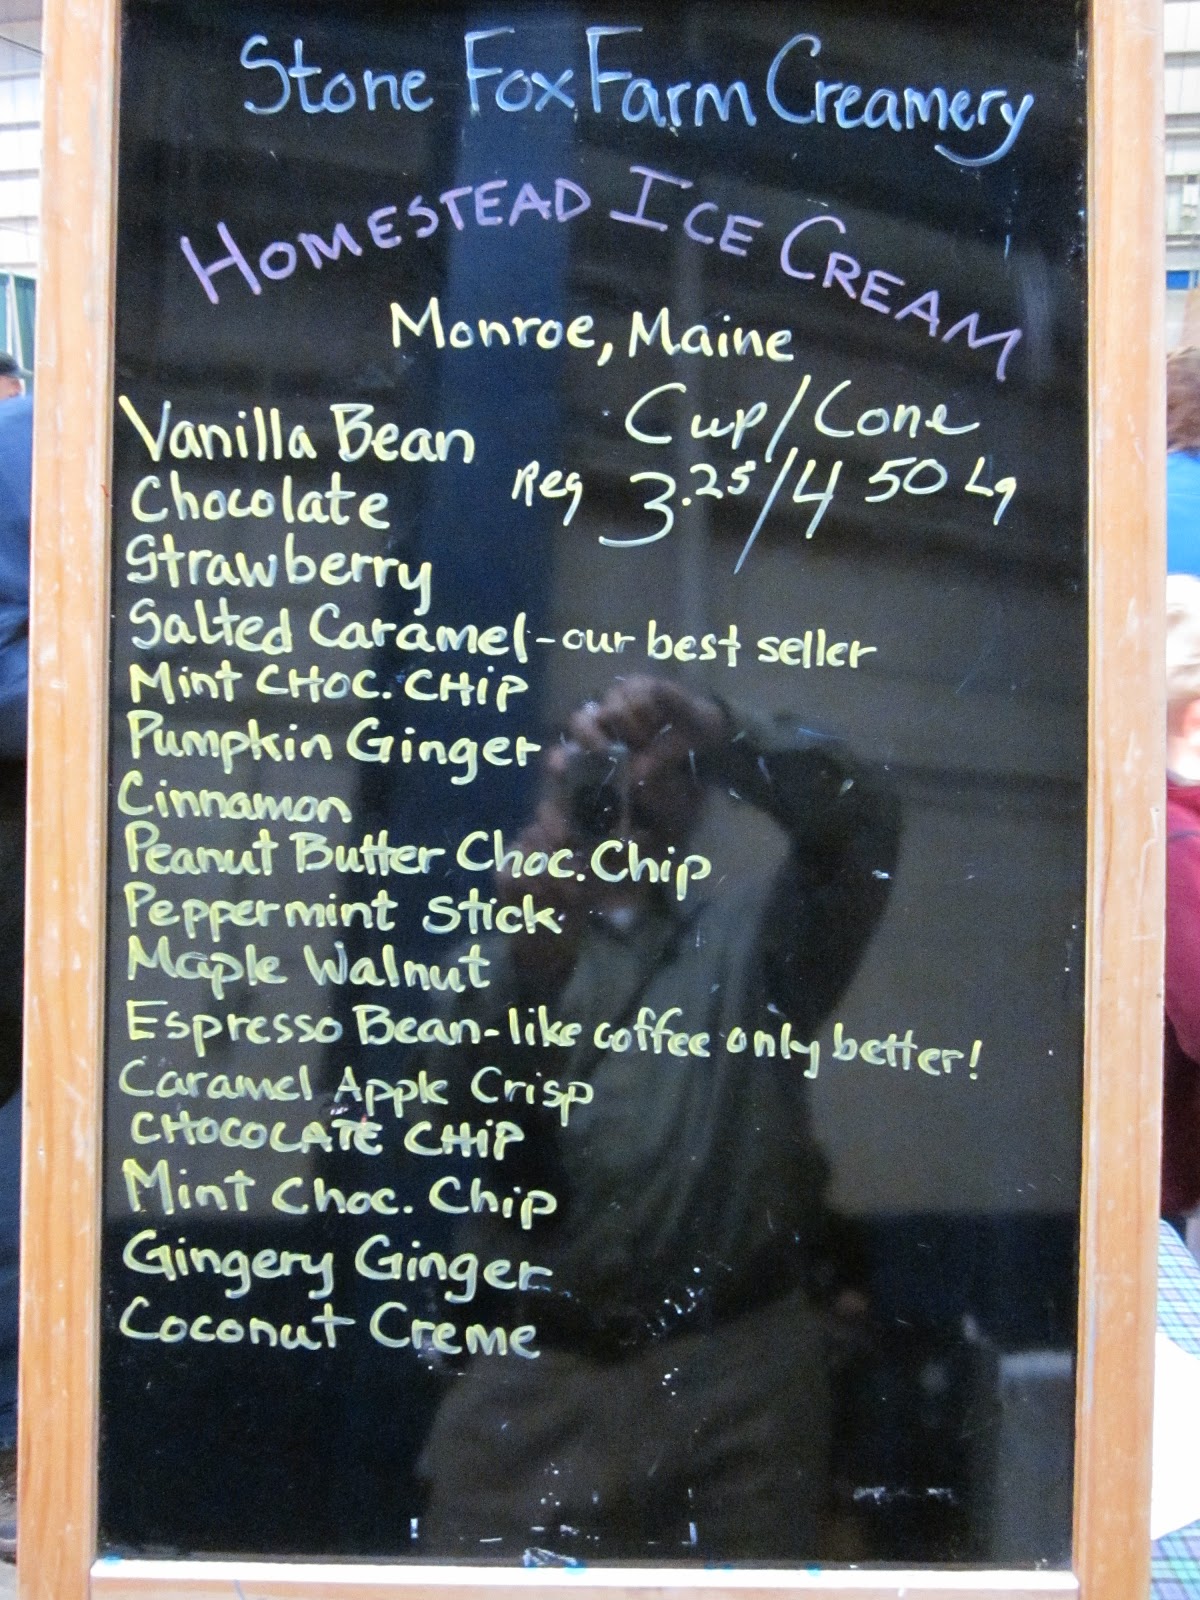 Stone Fox Farm Creamery
HOMESTEAD ICE CREAM
Monroe, Maine
Cup/Cone
Reg 3.25/4 50 Lg
Vanilla Bean
Chocolate
Strawberry
Salted Caramel - our best seller
Mint CHOC. CHIP
Pumpkin Ginger
Cinnamon
Peanut Butter Choc. Chip
Peppermint Stick
Maple Walnut
Espresso Bean - like coffee only better!
Caramel Apple Crisp
CHOCOLATE CHIP
Mint Choc. Chip
Gingery Ginger
Coconut Creme